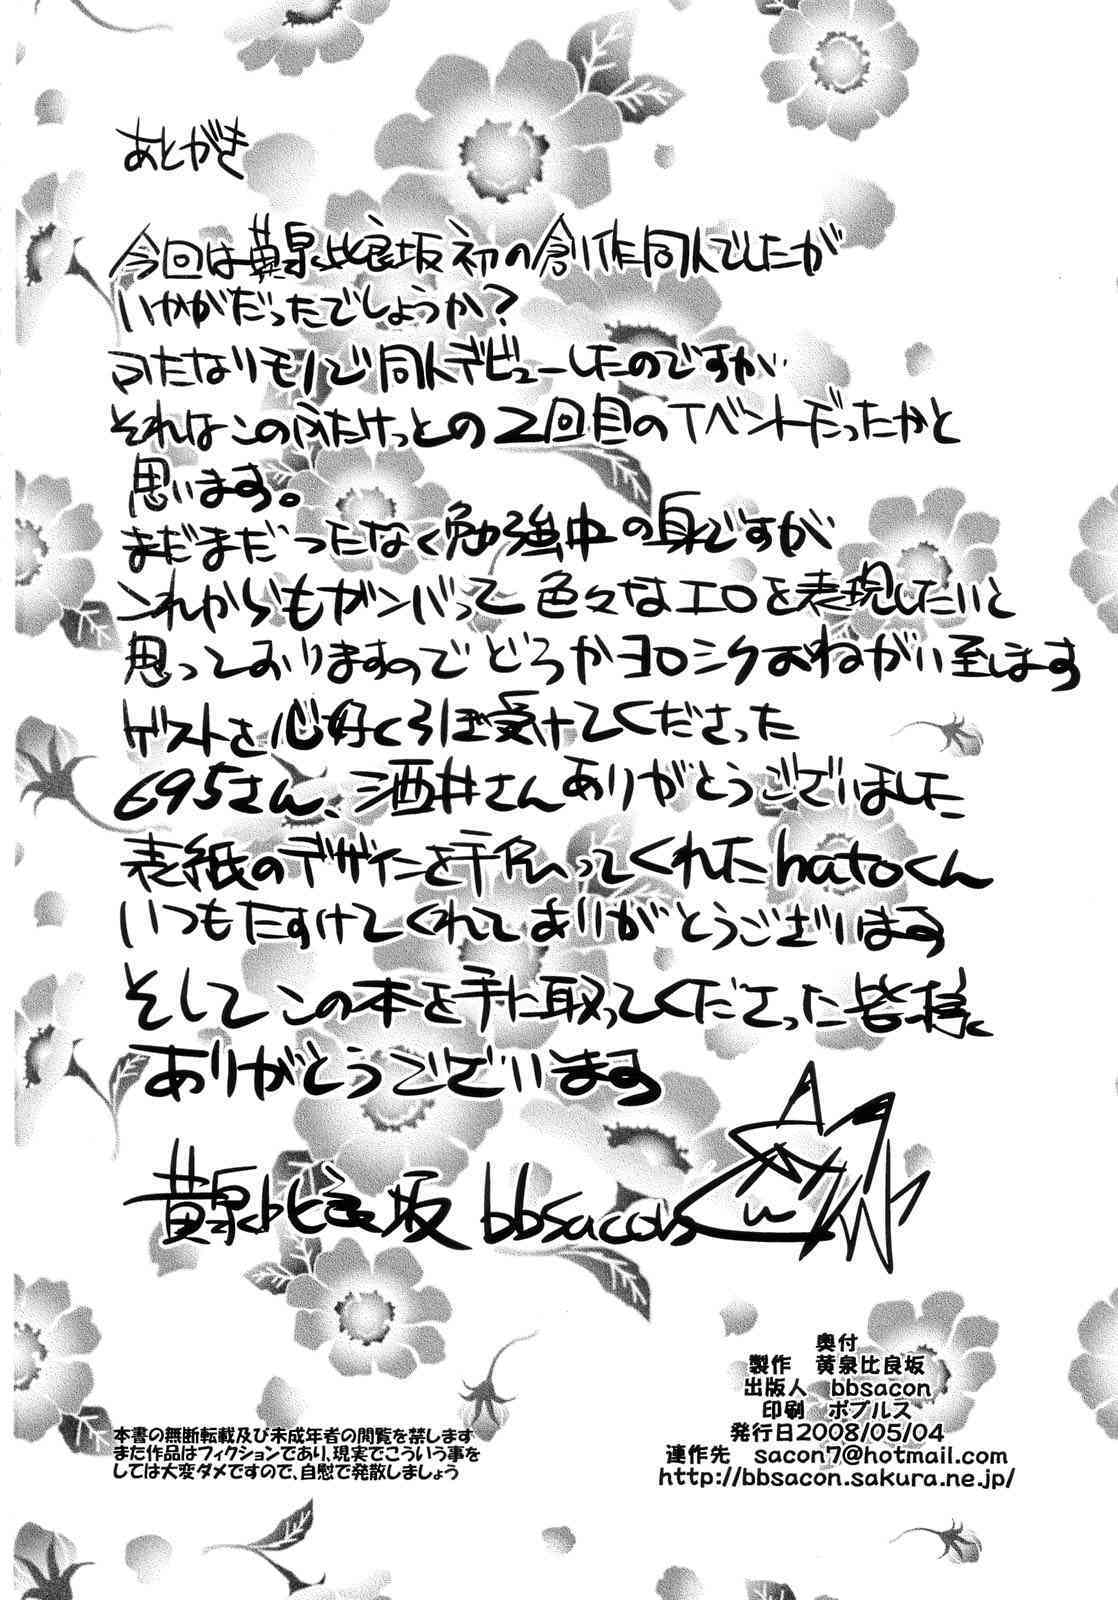 あとがき
今回は黄泉比良坂初の創作同人でしたが
いかがだったでしょうか?
ふたなりモノで同人デビューしたのですが
それはこのふたけっとの2回目のイベントだったかと
思います。
まだまだつたなく勉強中の身ですが
これからもガンバって色々なエロを表現したいと
思っておりますのでどうかヨロシクおねがい致します
ゲストを心好くひき受けてくださった
695さん、酒井さんありがとうございました
表紙のデザインを手伝ってくれたhatoくん
いつもたすけてくれてありがとうございます
そしてこの本を手に取ってくださった皆様
ありがとうございます
黄泉比良坂 bbsacon
奥付
製作 黄泉比良坂
出版人 bbsacon
印刷 ポプルス
発行日2008/05/04
連作先 sacon7@hotmail.com
http://bbsacon.sakura.ne.jp/
本書の無断転載及び未成年者の閲覧を禁します
また作品はフィクションであり、現実でこういう事を
しては大変ダメですので、自慰で発散しましょう